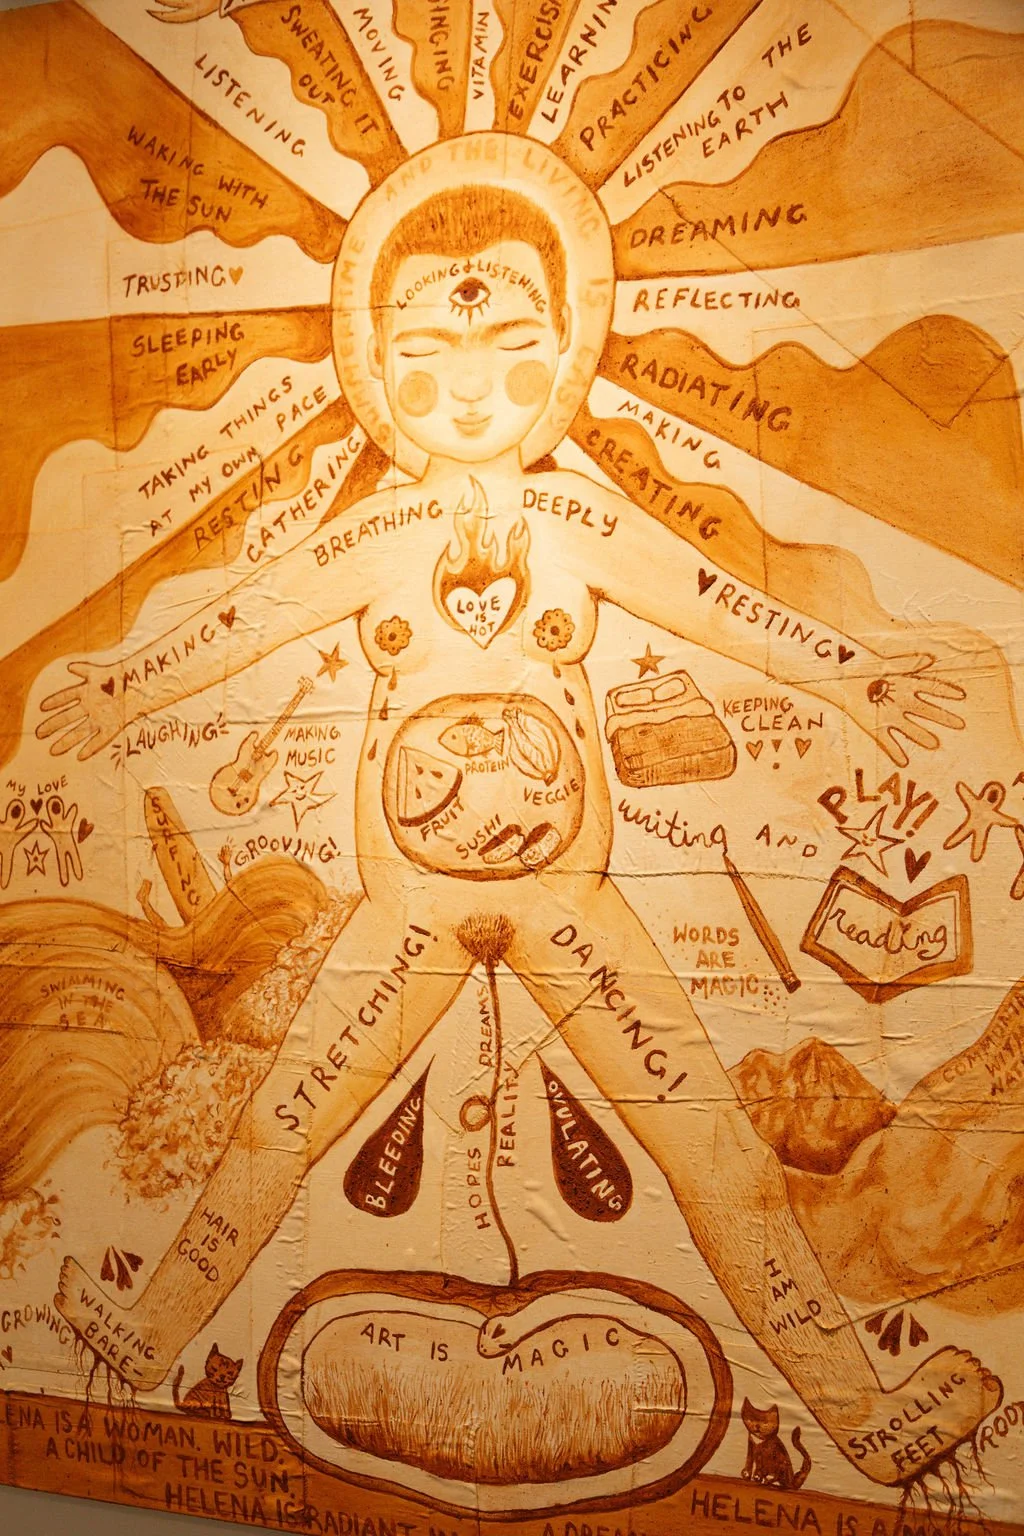 SWEATING
OUT IT
MOVING
VITAMIN
LEARNIN
PRACTICING
LISTENING TO THE
EARTH
LISTENING
WAKING WITH
THE SUN
TRUSTING
SLEEPING
EARLY
TAKING THINGS
AT MY OWN PACE
RESTING
GATHERING
DREAMING
REFLECTING
RADIATING
MAKING
CREATING
SUMMERTIME AND THE LIVING IS EASY
LOOKING & LISTENING
BREATHING DEEPLY
LOVE
IS
HOT
MAKING
RESTING
LAUGHING!
MAKING
MUSIC
GROOVING!
MY LOVE
SURFING
SWIMMING
IN THE
SEA
PROTEIN
FRUIT
VEGGIE
SUSHI
KEEPING
CLEAN
writing AND
PLAY!
reading
WORDS
ARE
MAGIC
WITH
STRETCHING!
DANCING!
DREAMS
REALITY
HOPES
BLEEDING
OVULATING
HAIR
IS
GOOD
I AM
WILD
GROWING
WALKING
BARE-
STROLLING
FEET
ART IS MAGIC
ENA IS A WOMAN. WILD.
A CHILD OF THE SUN.
HELENA IS RADIANT
HELENA IS A